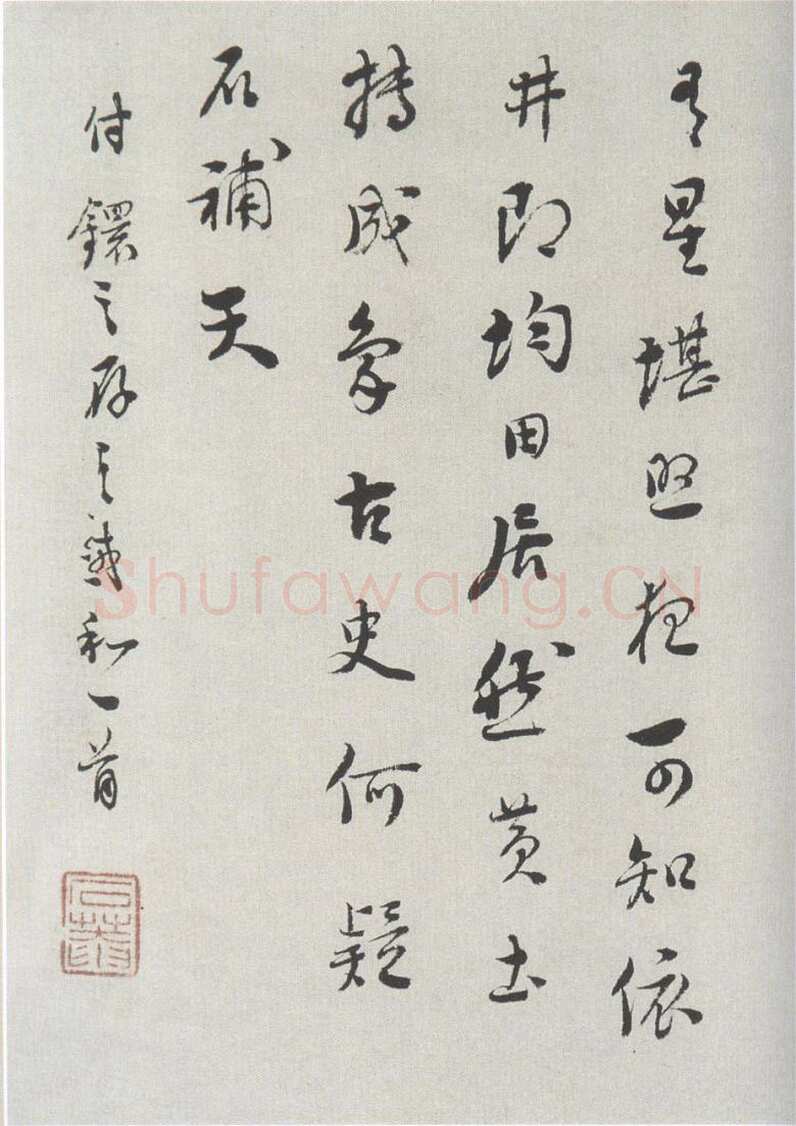 有星堪照夜可知依
井即均田居然黄土
摶成象古史何疑
石补天
付鐶之存之兼和一首
Shufawang.CN